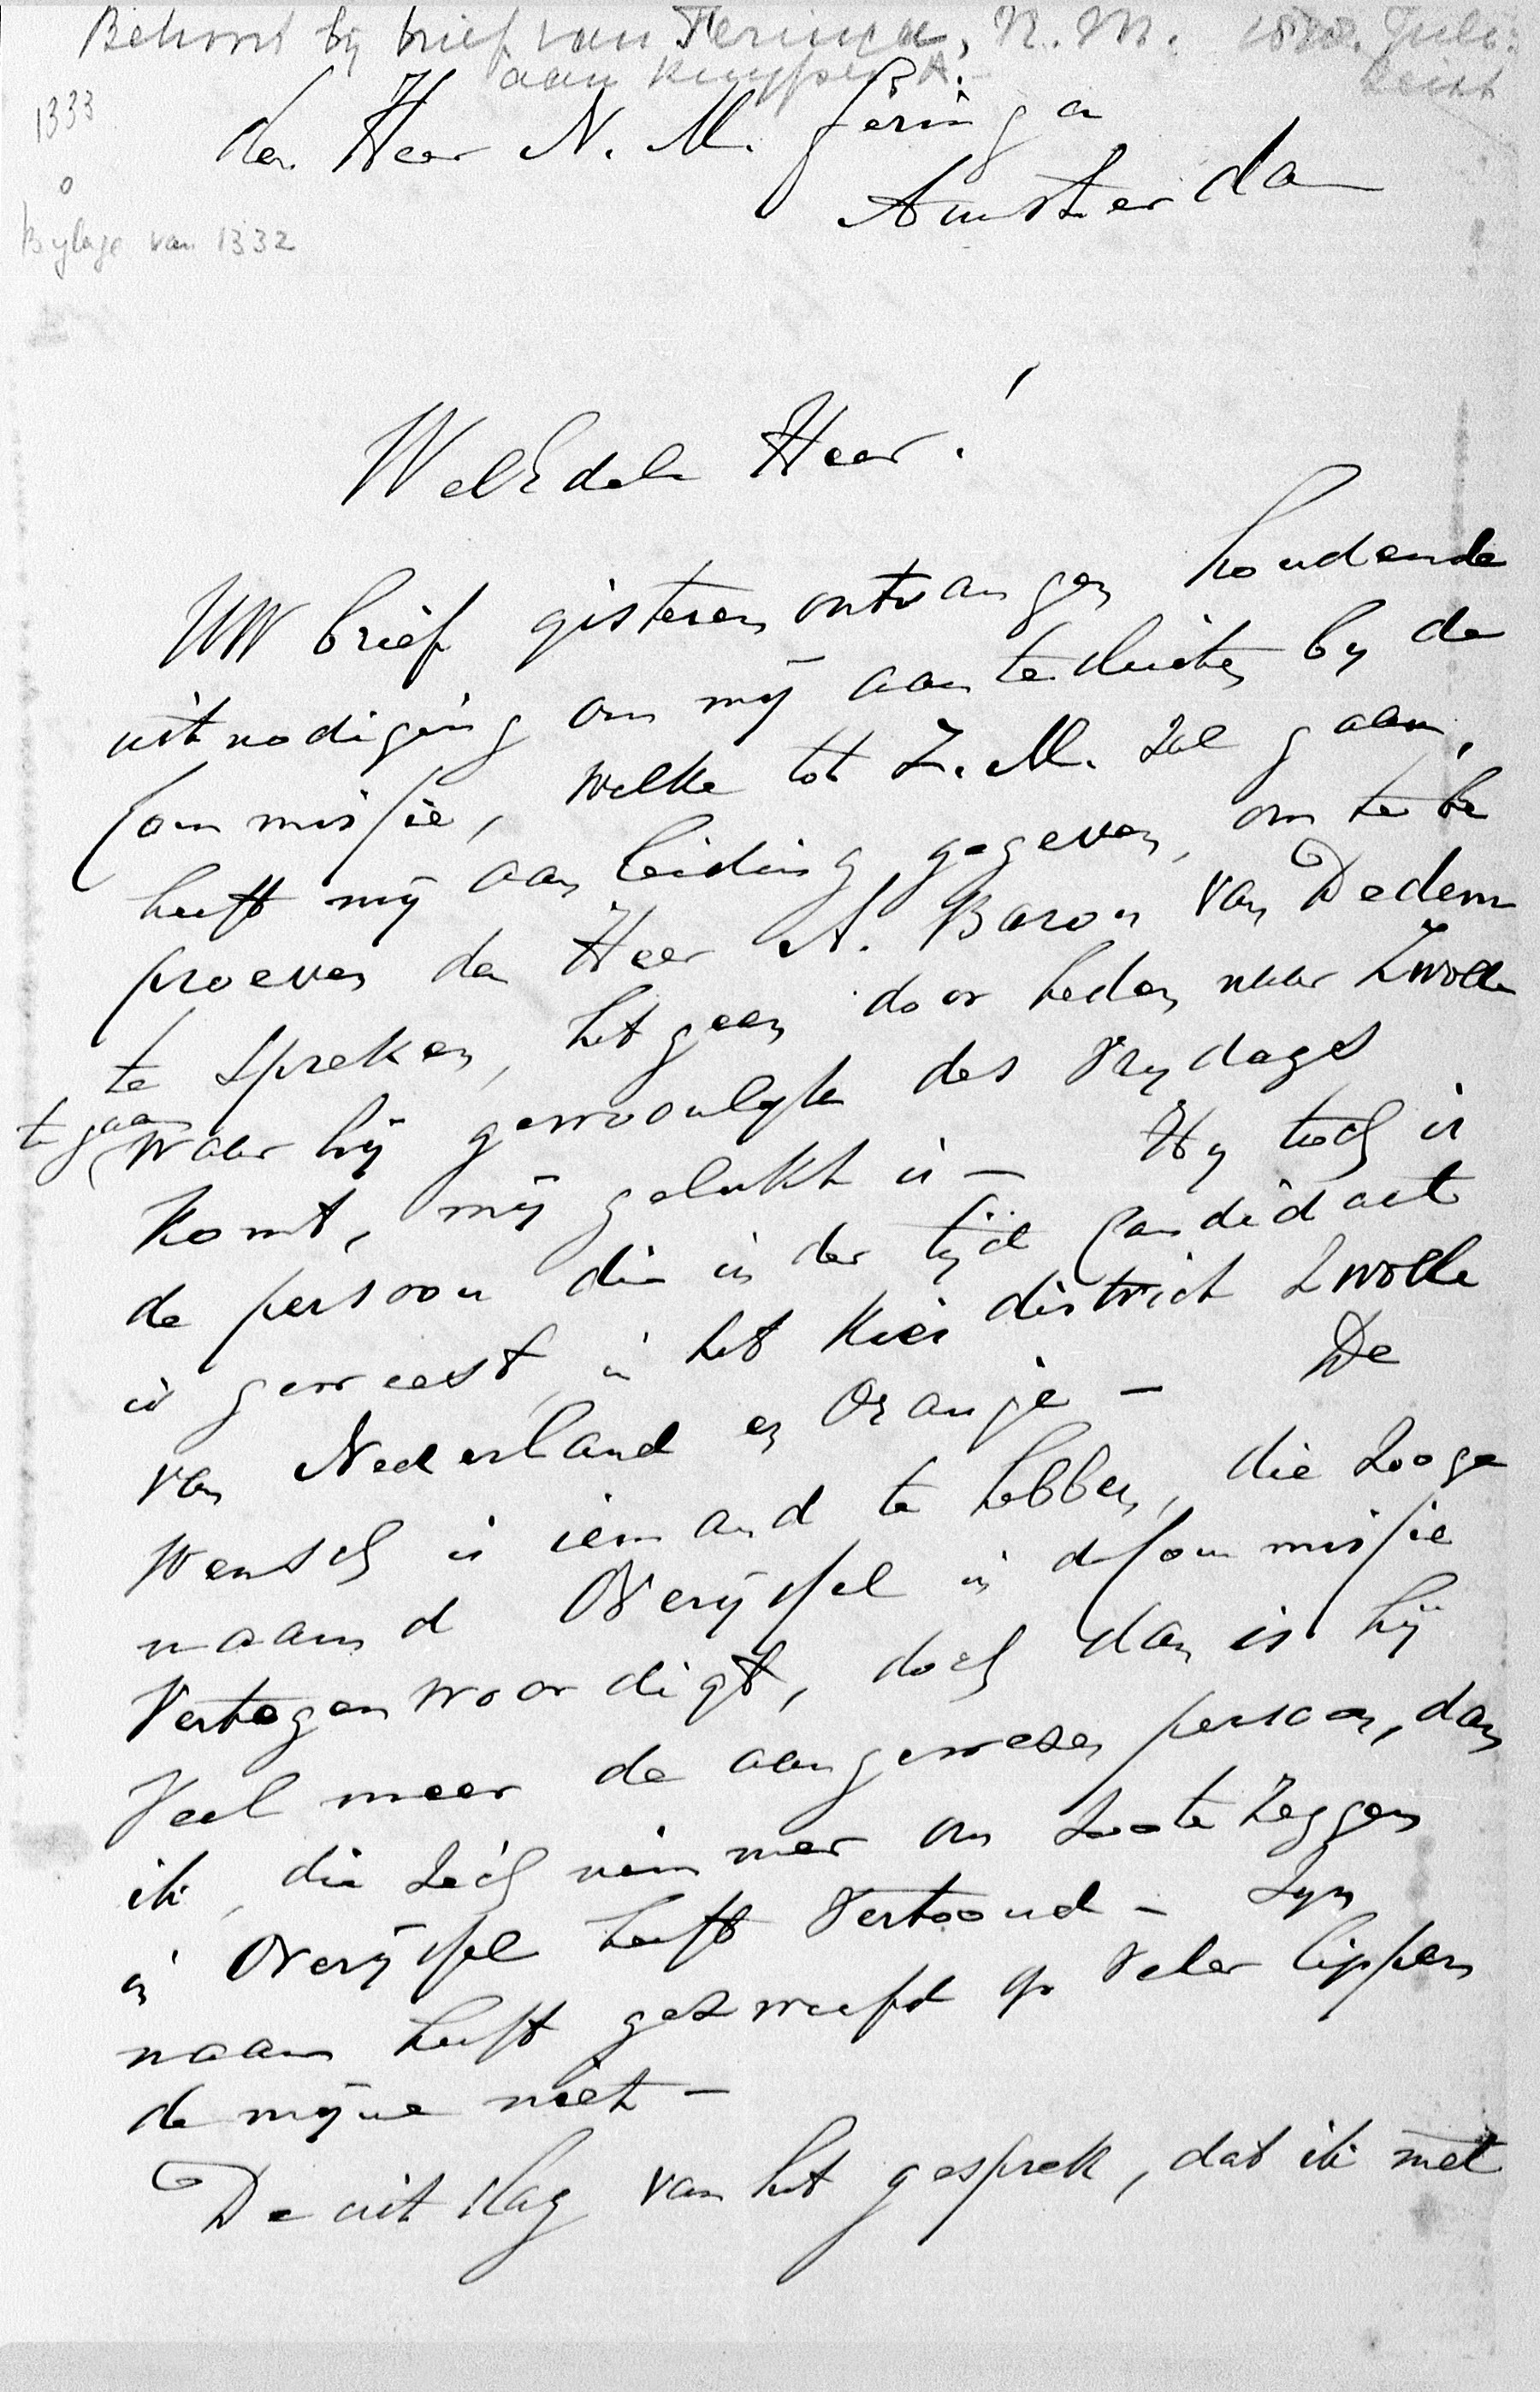 Behoort bij brief van Feringa, N. M. 1878. Juli.
aan Kuyper A.
1333
0
Bylage van 1332
den Heer N. M. Feringa
Amsterdam
WelEdele Heer!
UW brief gisteren ontvangen houdende
uitnodiging om mij aan te sluiten by de
Commissie, welke tot Z. M. zal gaan,
heeft mij aanleiding gegeven, om te be
proeven den Heer A. Baron van Dedem
te spreken, hetgeen door heden naar Zwolle
te gaan
waar hij gewoonlyk des Vrydags
komt, mij gelukt is — Hy toch is
de persoon die in der tijd Candidaat
is geweest, in het Kies district Zwolle
van Nederland en Oranje — De
wensch is iemand te hebben, die zooge
naamd Overijssel in de Commissie
Vertegenwoordigt, doch dan is hij
Veel meer de aangewezen persoon, dan
ik, die zich nimmer om zoo te zeggen
in Overijssel heeft Vertoond — Zyn
naam heeft gezweefd op Veler lippen
de mijne niet —
De uitslag van het gesprek, dat ik met